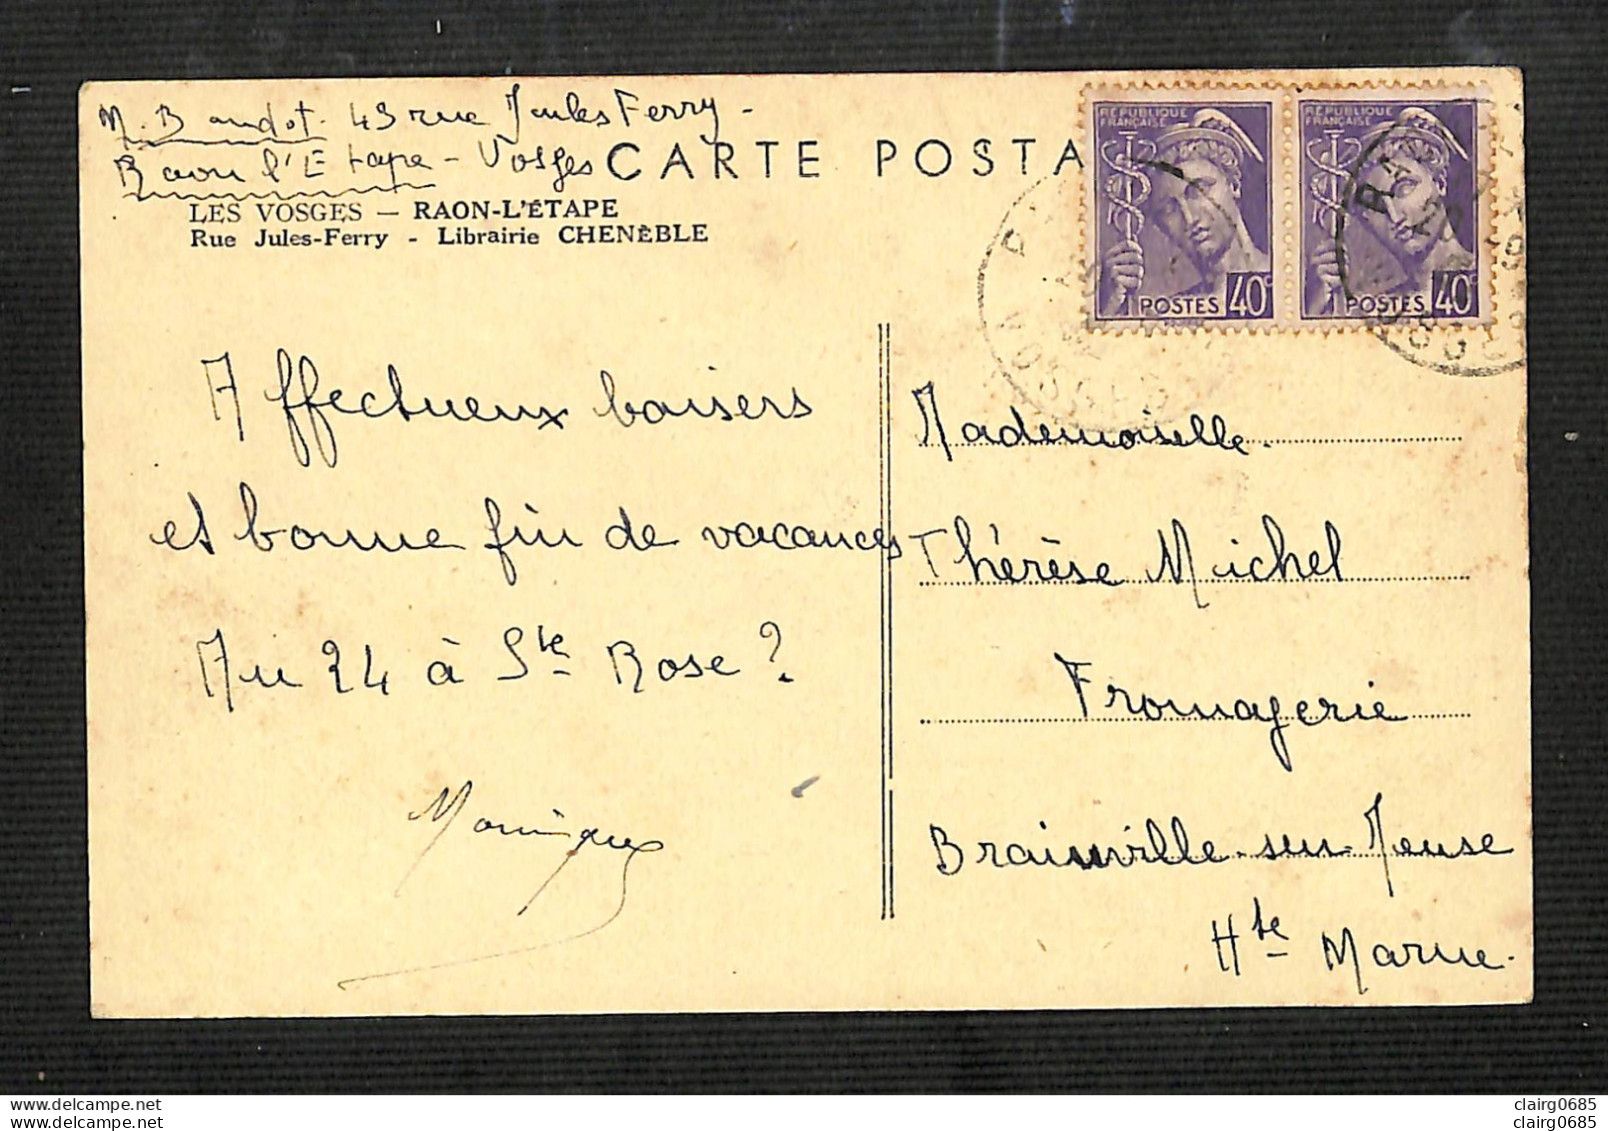 M. Baudot. 43 rue Jules Ferry -
Raon l'Etape - Vosges
CARTE POSTA
LES VOSGES — RAON-L'ÉTAPE
Rue Jules-Ferry - Librairie CHENÈBLE
RÉPUBLIQUE FRANÇAISE
POSTES 40c
RÉPUBLIQUE FRANÇAISE
POSTES 40c
VOSGES
Affectueux baisers
et bonne fin de vacances
Au 24 à Ste Rose ?
Monique
Mademoiselle.
Thérèse Michel
Fromagerie
Brainville-sur-Meuse
Hte Marne.
clairg0685
clairg0685
clairg0685
clairg0685